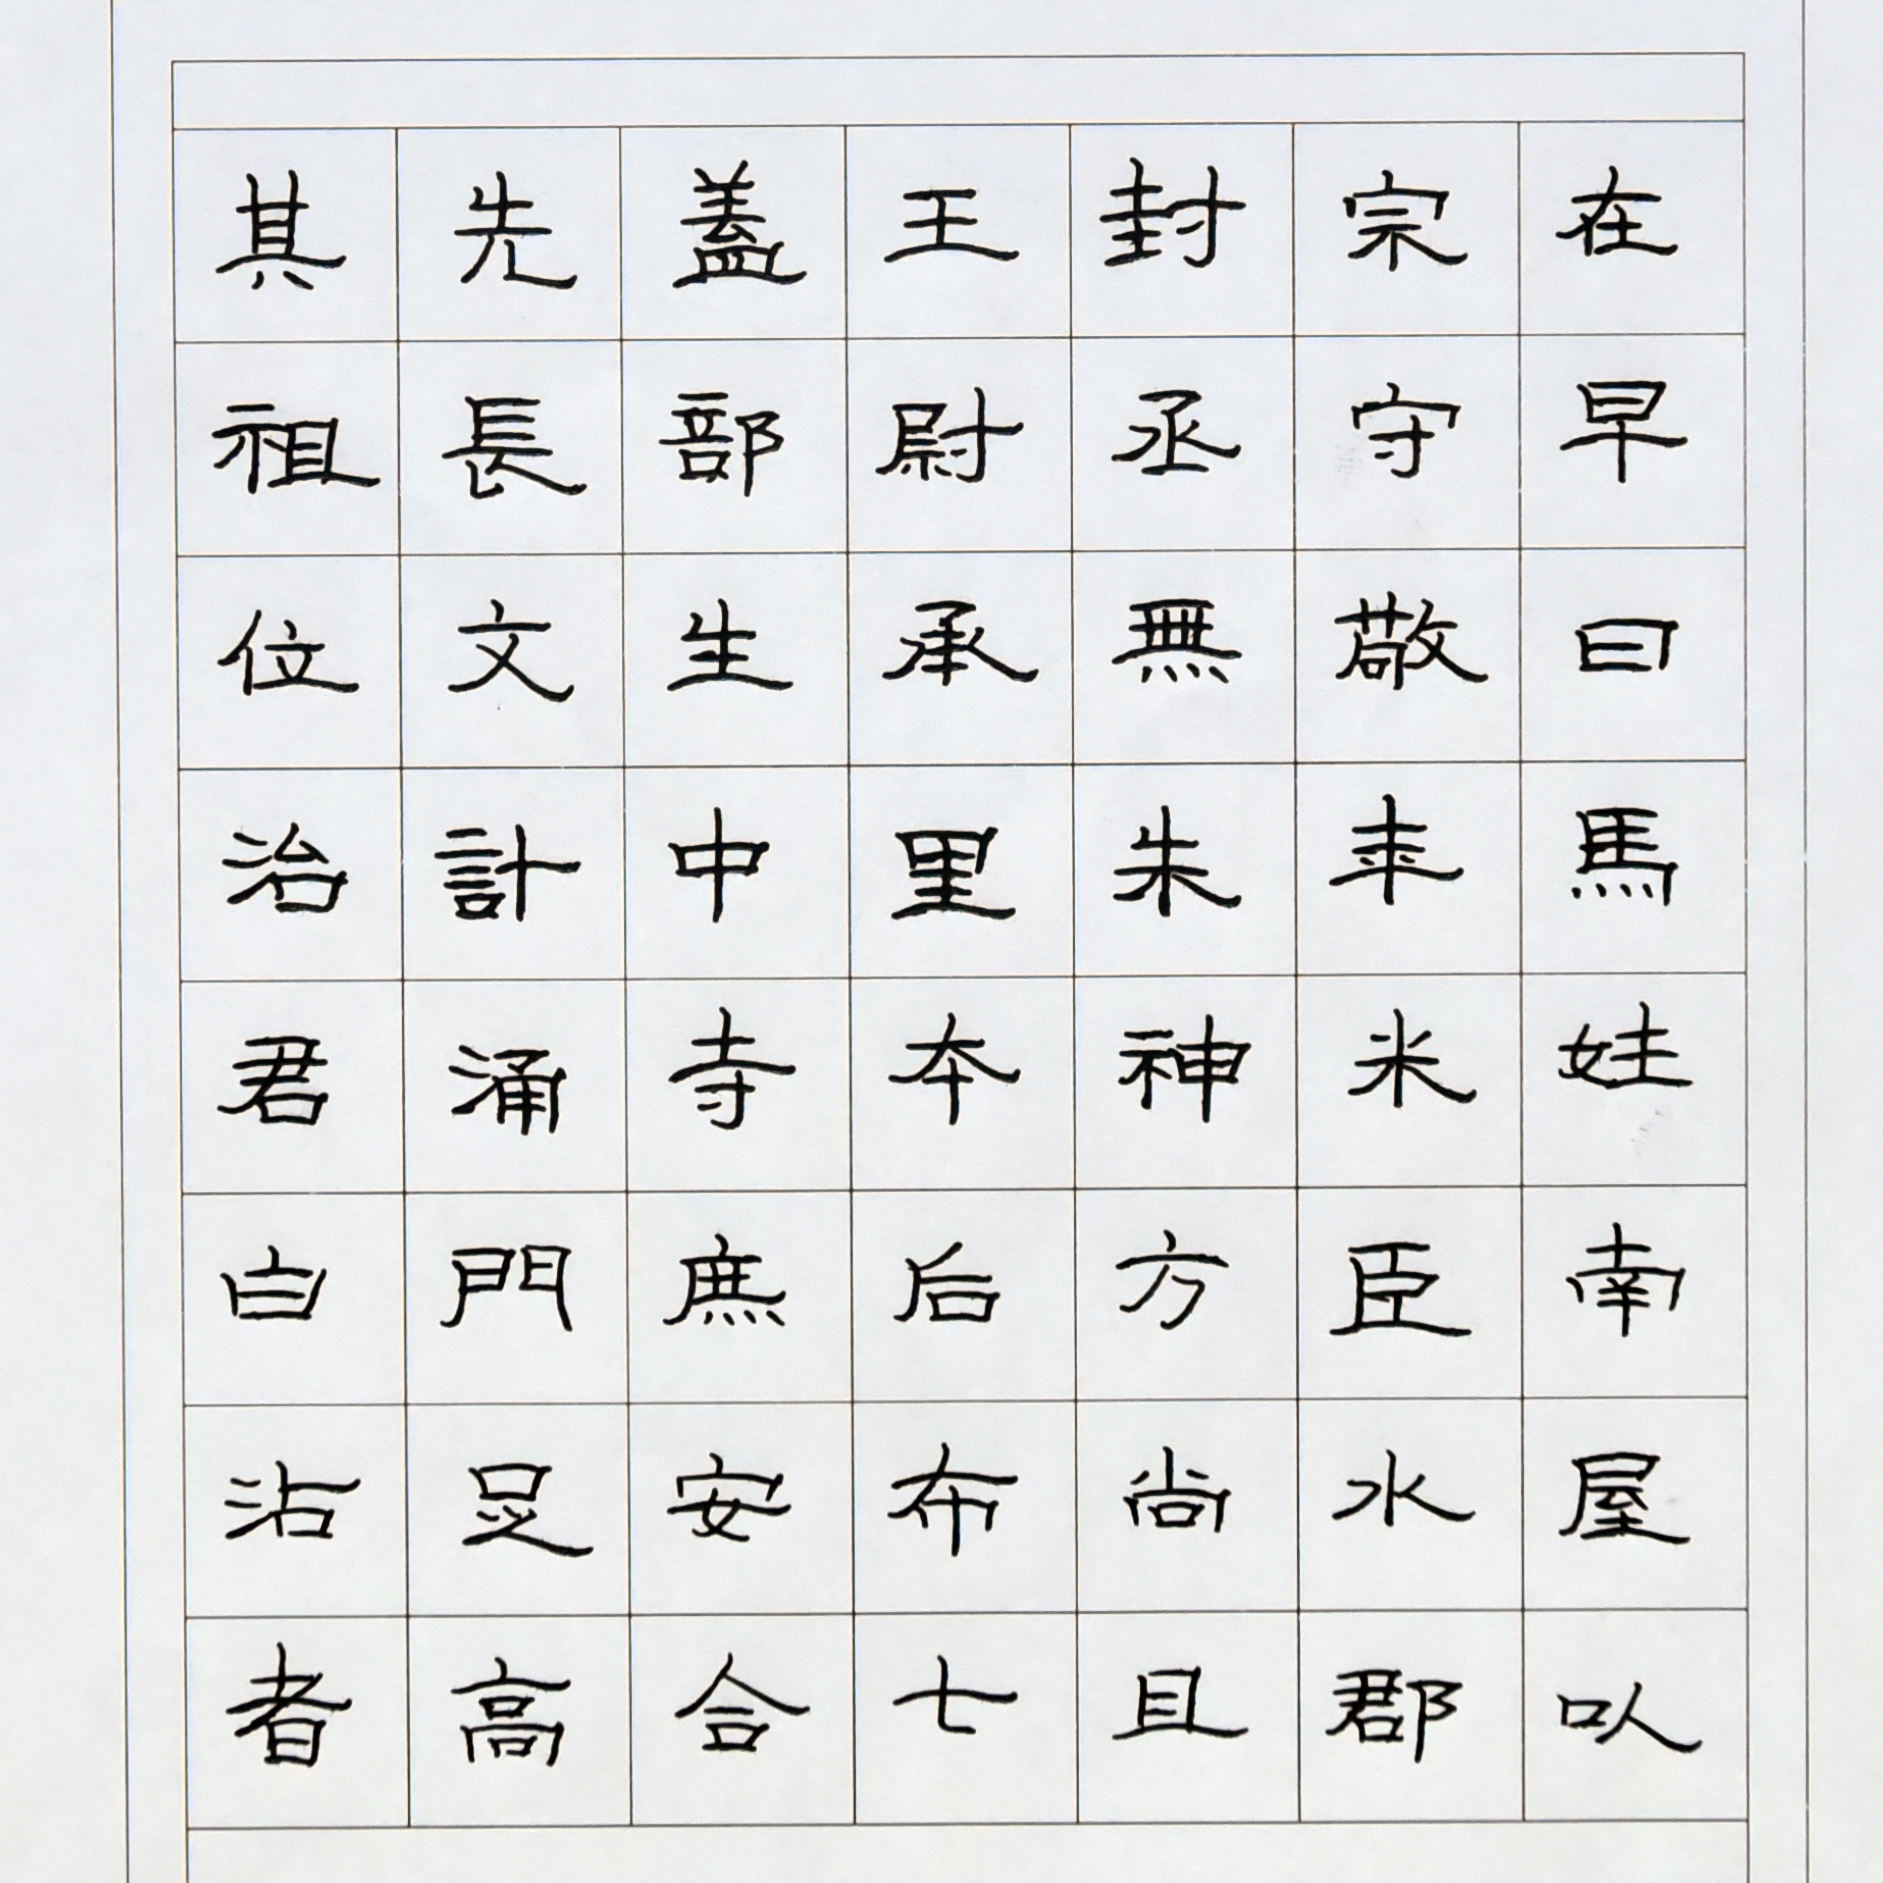 在早曰馬娃南屋以
宗守敬年米臣水郡
封丞無朱神方尚且
王尉承里本后布七
盖部生中寺庶安合
先長文計涌門足高
其祖位治君白沾者